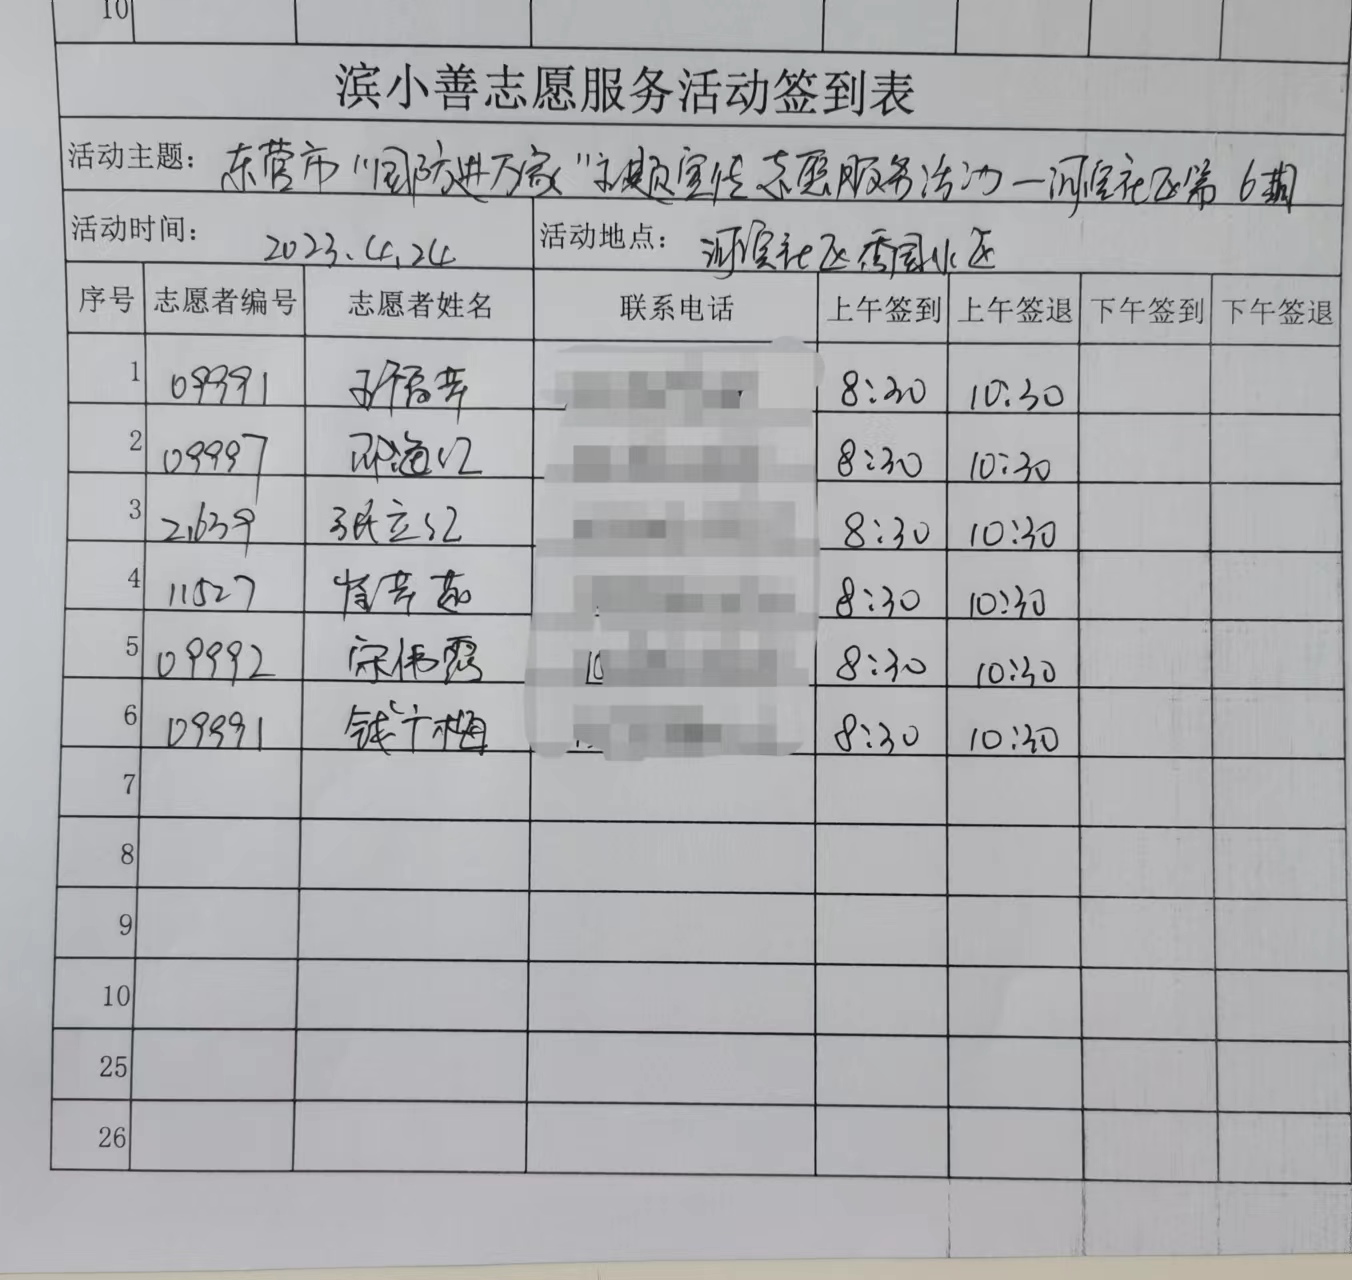 10
滨小善志愿服务活动签到表
活动主题: 东营市"国防进万家"主题宣传志愿服务活动—河滨社区第6期
活动时间: 2023.4.24 活动地点: 河滨社区秀园小区
序号 志愿者编号 志愿者姓名 联系电话 上午签到 上午签退 下午签到 下午签退
1 09991 8:30 10:30
2 09997 8:30 10:30
3 21639 张立红 8:30 10:30
4 11527 8:30 10:30
5 09992 宋伟霞 10 8:30 10:30
6 09991 钱广梅 8:30 10:30
7
8
9
10
25
26